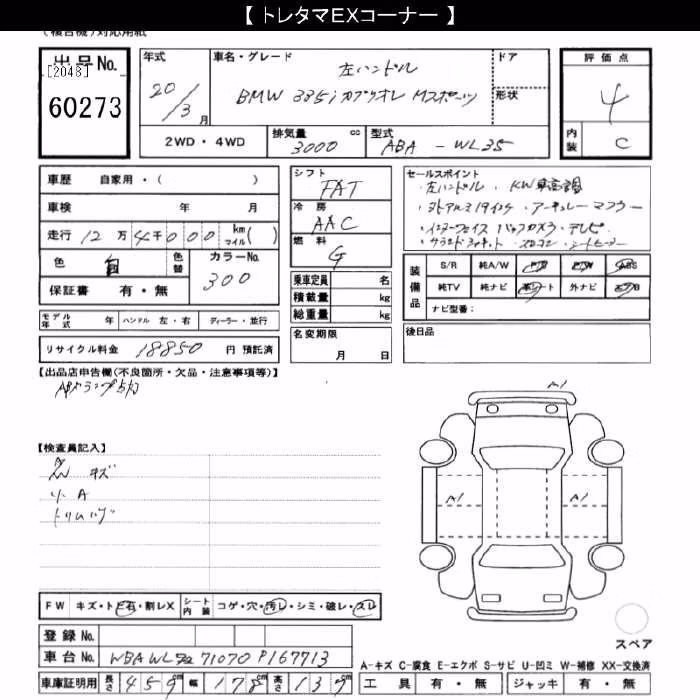 【 トレタマEXコーナー 】
(複合機)対応用紙
出品No.
[2048]
60273
年式
20/3月
車名・グレード
左ハンドル
BMW 335i カブリオレ Mスポーツ
ドア
形状
評価点
4
内装
C
2WD・4WD
排気量 3000 cc
型式 ABA - WL35
車歴 自家用・( )
車検 年 月
走行 12万4千000 km マイル( )
色 白 色替 カラーNo. 300
保証書 有・無
シフト
FAT
冷房
AAC
燃料
G
乗車定員 名
積載量 kg
総重量 kg
セールスポイント
・左ハンドル ・KW車高調
・社外アルミ19インチ ・アーキュレーマフラー
・インターフェイス バックカメラ・テレビ
装備品
S/R 純A/W P/S P/W ABS
純TV 純ナビ 革シート 外ナビ エアB
ナビ型番:
モデル年式 年 ハンドル 左・右 ディーラー・並行
リサイクル料金 18850 円 預託済
名変期限
月 日
後日品
【出品店申告欄(不良箇所・欠品・注意事項等)】
ABSランプ点灯
【検査員記入】
キズ
小A
A1
A1
A1
FW キズ・トビ石・割レX シート内装 コゲ・穴・汚レ・シミ・破レ・スレ
登録No.
車台No. WBAWL72 71070 P167713
車庫証明用 長さ 459 cm 幅 178 cm 高さ 139 cm
スペア
A-キズ C-腐食 E-エクボ S-サビ U-凹ミ W-補修 XX-交換済
工具 有・無 ジャッキ 有・無